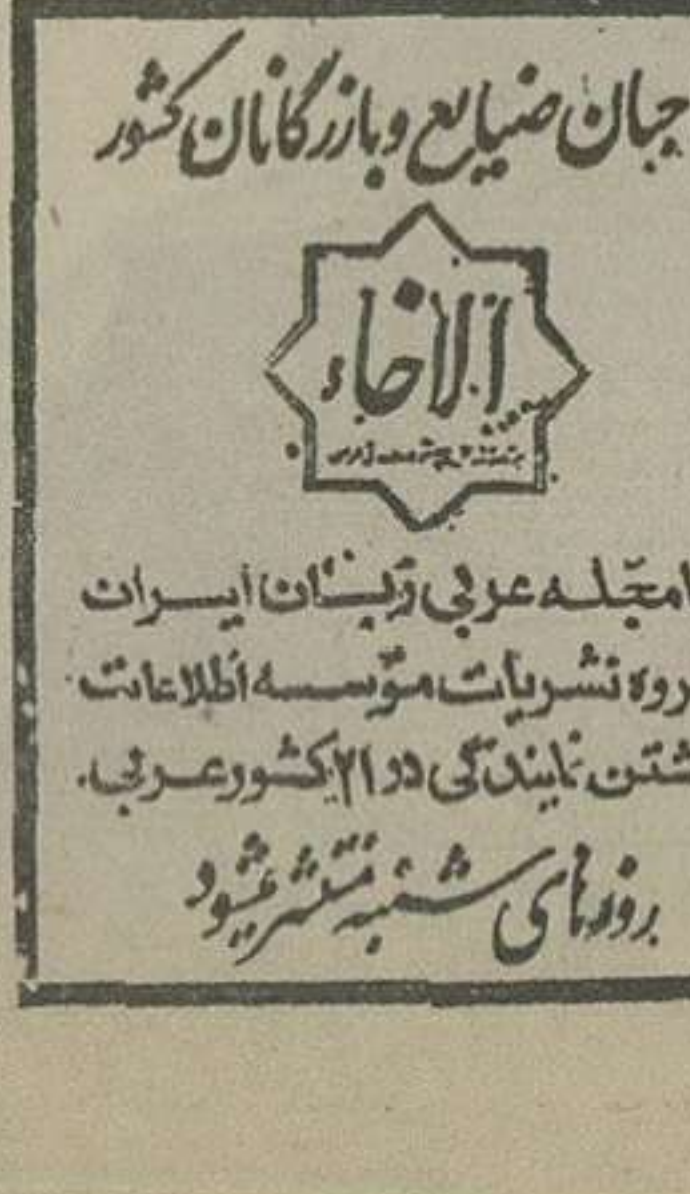 جهان صنایع و بازرگانان کشور
الاخاء
مجله عربی زبان ایران
روه نشریات مؤسسه اطلاعات
شتن نمایندگی در ۲۱ کشور عربی.
روزهای شنبه منتشر میشود